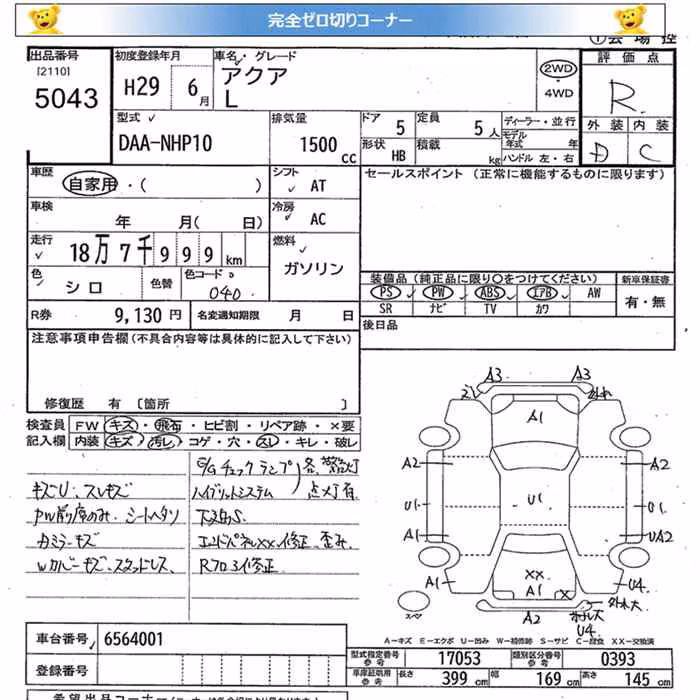 完全ゼロ切りコーナー
出品番号
[2110]
5043
初度登録年月
H29 6月
車名・グレード
アクア
L
2WD
・4WD
評価点
R
外装 内装
D C
型式
DAA-NHP10
排気量
1500 cc
ドア 5
定員 5人
形状 HB
積載 kg
ディーラー・並行
モデル
年式 年
ハンドル 左・右
車歴
自家用・( )
シフト
AT
車検
年 月( 日)
冷房
AC
走行
18万7千999km
燃料
ガソリン
色
シロ
色替
色コードNo
040
R券 9,130円
名変通知期限 月 日
セールスポイント (正常に機能するものに限ります)
装備品 (純正品に限り○をつけてください)
新車保証書
PS PW ABS エアB AW
有・無
SR ナビ TV カワ
後日品
注意事項申告欄(不具合内容等は具体的に記入して下さい)
修復歴 有 [箇所 ]
検査員
記入欄
FW キズ・飛石・ヒビ割・リペア跡・×要
内装 キズ・汚レ・コゲ・穴・スレ・キレ・破レ
キズU.スレキズ
PW前席のみ.シートヘタリ
カミラーキズ
Wカバーキズ.スタッドレス.
E/Gチェックランプ
ハイブリットシステム
各.警告灯
点灯有
下廻S
エンドパネルXX修正.歪み.
Rフロア修正
A3
A3
A1
A2
A2
U1
U1
U1
UA2
A1
XX
A1
X
U4
A2
U4
スペア
A-キズ E-エクボ U-凹み W-補修跡 S-サビ C-腐食 XX-交換済
車台番号 6564001
登録番号
型式指定番号
参考
17053
類別区分番号
参考
0393
車庫証明用
参考
長さ 399 cm
幅 169 cm
高さ 145 cm